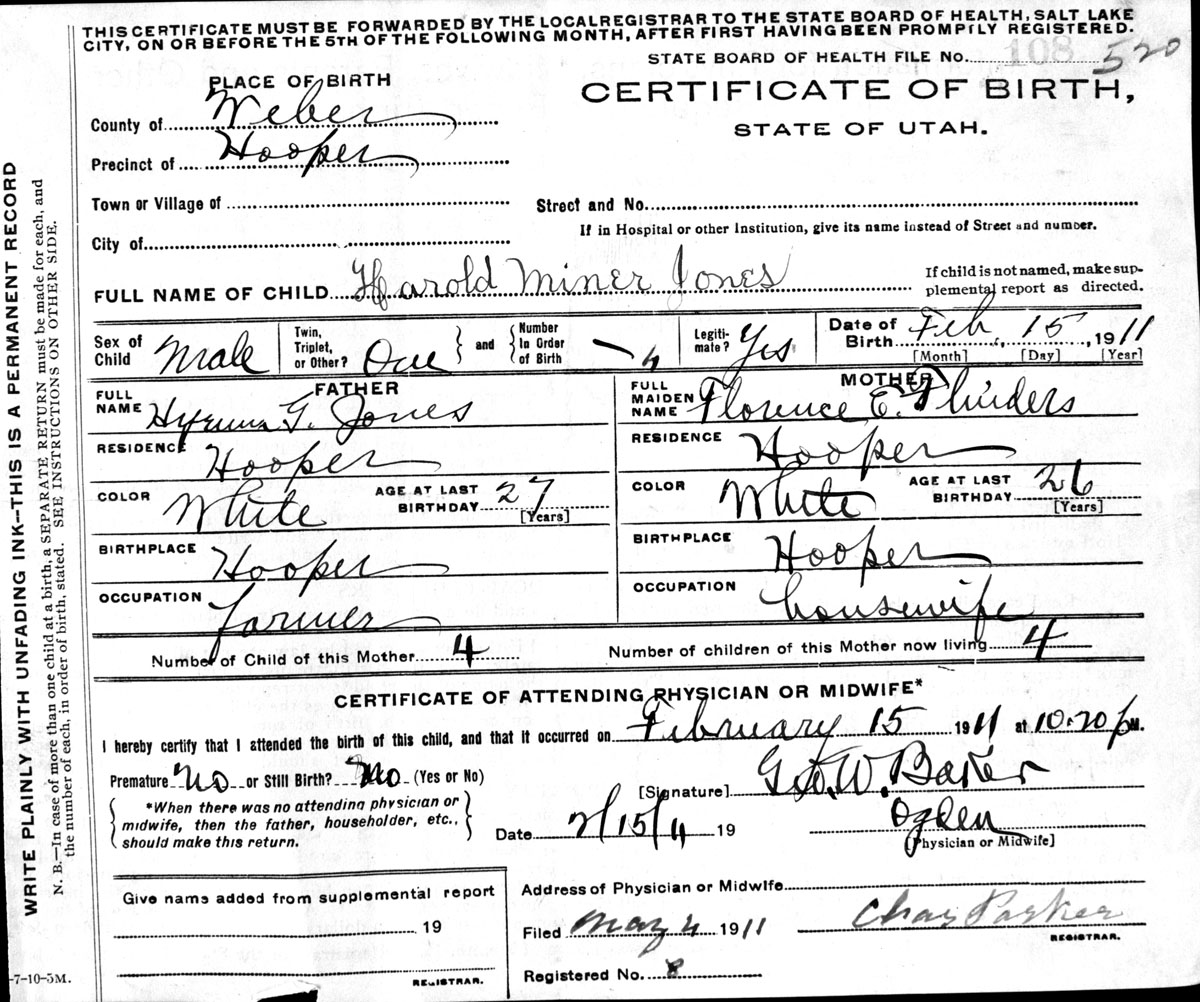 THIS CERTIFICATE MUST BE FORWARDED BY THE LOCAL REGISTRAR TO THE STATE BOARD OF HEALTH, SALT LAKE
CITY, ON OR BEFORE THE 5TH OF THE FOLLOWING MONTH, AFTER FIRST HAVING BEEN PROMPTLY REGISTERED.
STATE BOARD OF HEALTH FILE No. 108 520
PLACE OF BIRTH
CERTIFICATE OF BIRTH,
STATE OF UTAH.
County of Weber
Precinct of Hooper
Town or Village of
Street and No.
City of
If in Hospital or other Institution, give its name instead of Street and number.
FULL NAME OF CHILD Harold Miner Jones
If child is not named, make sup-
plemental report as directed.
Sex of Child Male
Twin, Triplet, or Other? One
and
Number In Order of Birth 4
Legiti-mate? Yes
Date of Birth Feb, 15, 1911
[Month] [Day] [Year]
FATHER
FULL NAME Hyrum G. Jones
RESIDENCE Hooper
COLOR White AGE AT LAST BIRTHDAY 27
[Years]
BIRTHPLACE Hooper
OCCUPATION Farmer
MOTHER
FULL MAIDEN NAME Florence E.
RESIDENCE Hooper
COLOR White AGE AT LAST BIRTHDAY 26
[Years]
BIRTHPLACE Hooper
OCCUPATION housewife
Number of Child of this Mother 4
Number of children of this Mother now living 4
CERTIFICATE OF ATTENDING PHYSICIAN OR MIDWIFE*
I hereby certify that I attended the birth of this child, and that it occurred on February 15 1911 at 10.20 p M.
Premature No or Still Birth? No (Yes or No)
*When there was no attending physician or
midwife, then the father, householder, etc.,
should make this return.
[Signature] W.
Date 2/15/11 19
Ogden
(Physician or Midwife]
Give name added from supplemental report
19
REGISTRAR.
Address of Physician or Midwife
Filed May 4 1911
Chas Parker
REGISTRAR.
Registered No. 8
-7-10-5M.
WRITE PLAINLY WITH UNFADING INK—THIS IS A PERMANENT RECORD
N. B.—In case of more than one child at a birth, a SEPARATE RETURN must be made for each, and
the number of each, in order of birth, stated. SEE INSTRUCTIONS ON OTHER SIDE.